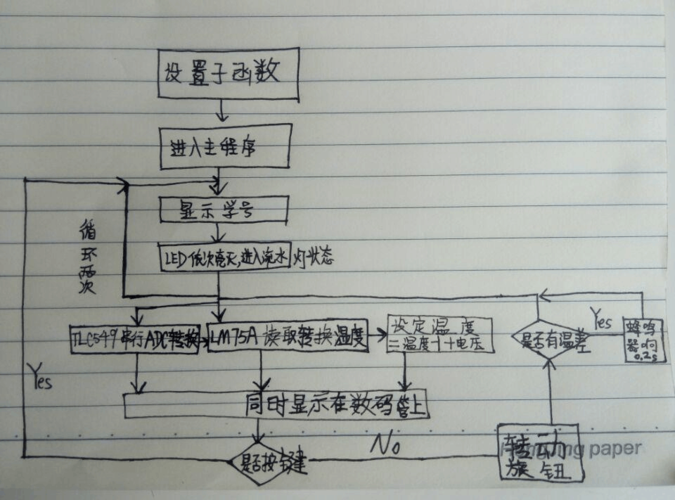 设置子函数
进入主程序
显示学号
循环两次
LED依次点灭,进入流水灯状态
TLC549串行ADC转换
LM75A读取转换温度
设定温度
=温度++电压
是否有温差
Yes
蜂鸣
器响
0.2s
Yes
同时显示在数码管上
是否按键
No
转动
旋钮
ing paper